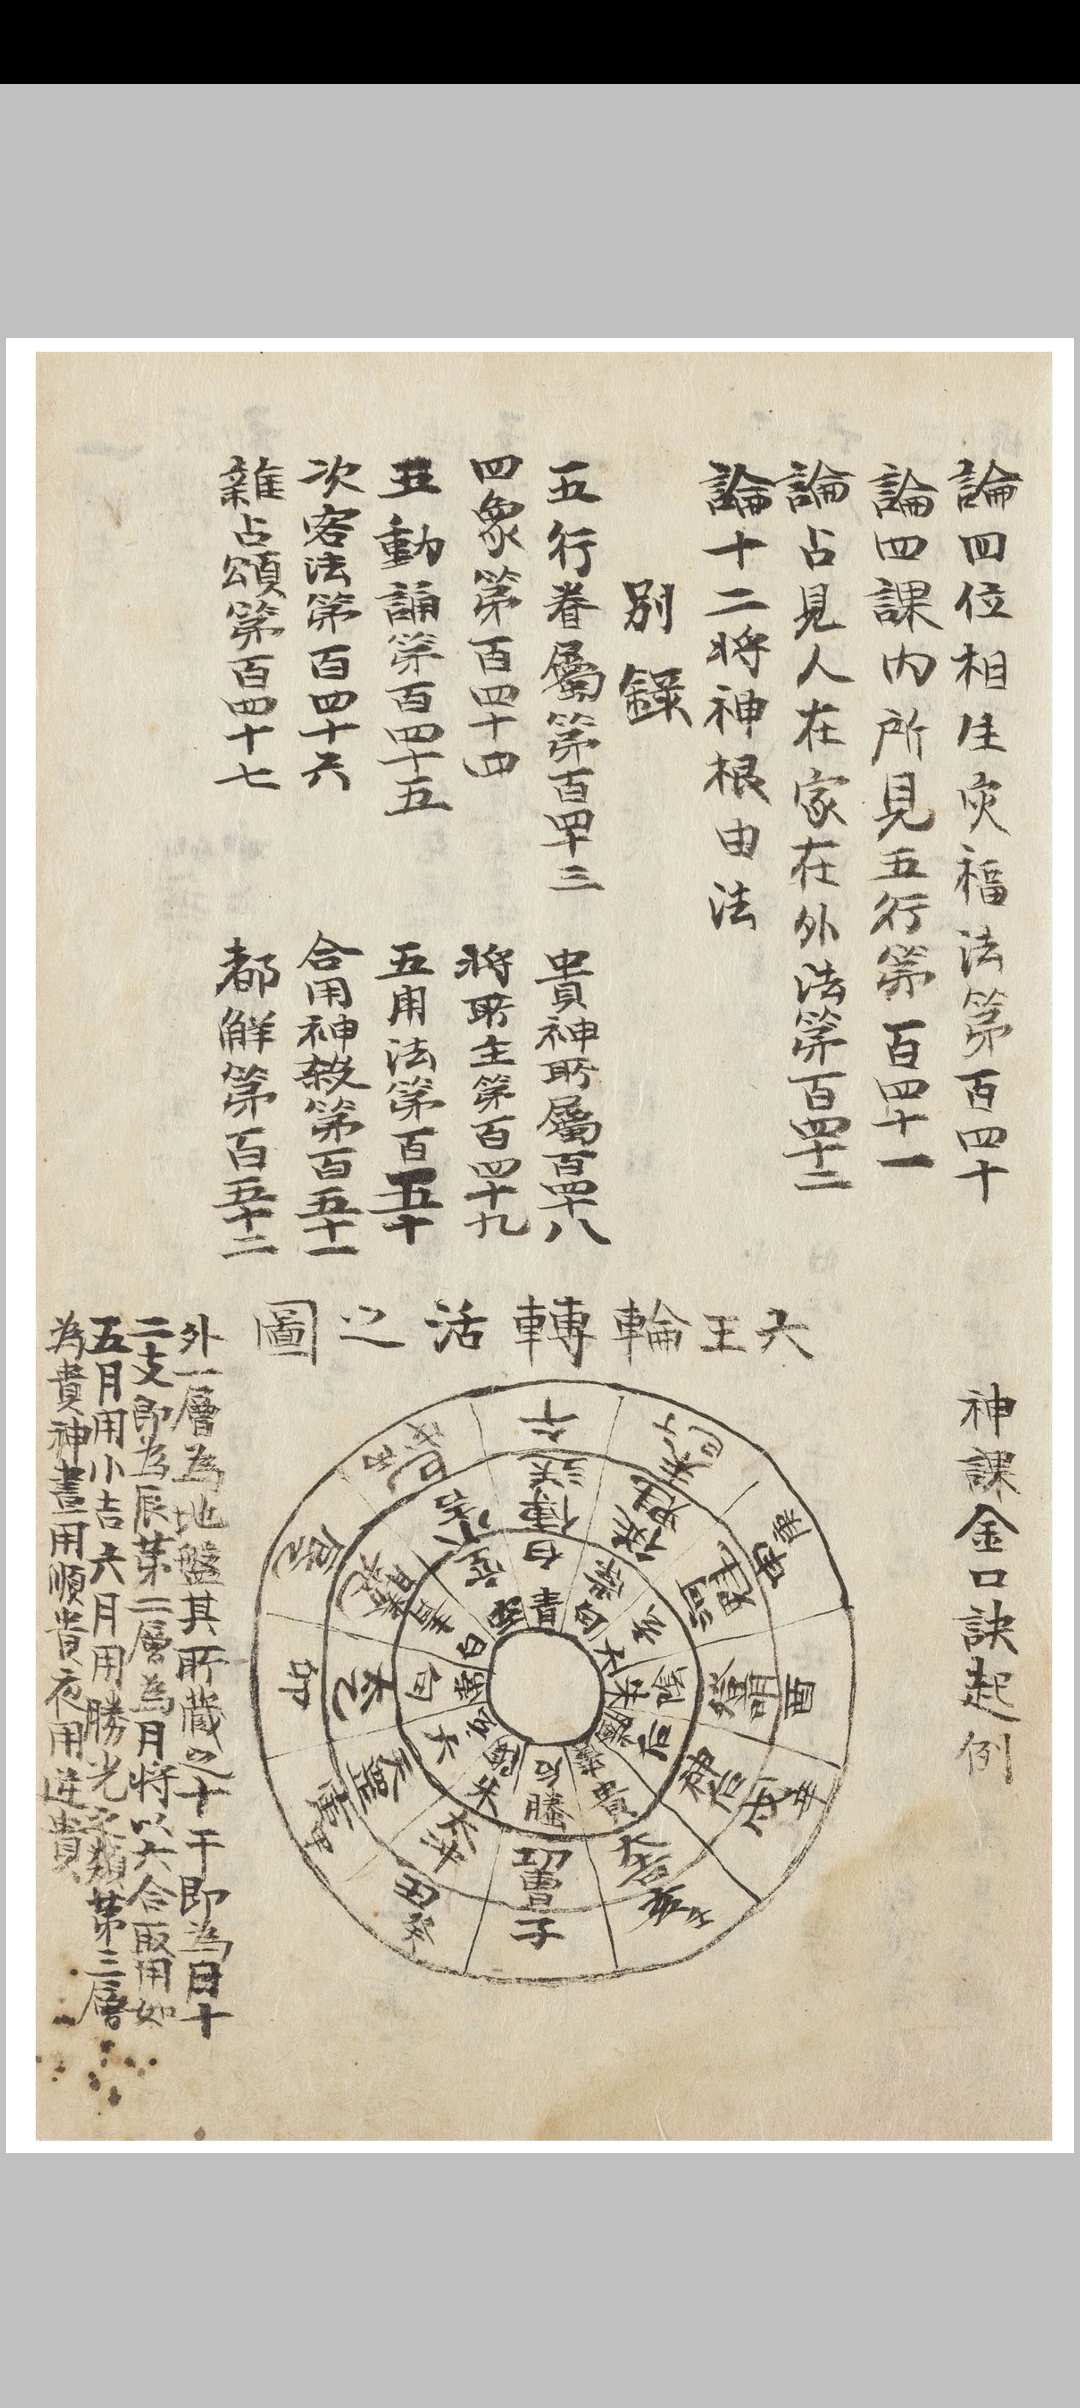 論四位相生灾福法第百四十
論四課內所見五行第百四十一
論占見人在家在外法第百四十二
論十二將神根由法
別錄
五行眷屬第百四十三
貴神所屬百四十八
四象第百四十四
將所主第百四十九
五動誦第百四十五
五用法第百五十
次客法第百四十六
合用神殺第百五十一
雜占頌第百四十七
都解第百五十二
神課金口訣起例
六壬輪轉活之圖
午
酉
戌辛
亥
子
丑癸
卯
辰乙
外一層為地盤其所藏之十干即為日十
二支即為辰第二層為月將以六合取用如
五月用小吉六月用勝光之類第三層
為貴神晝用順貴夜用逆貴